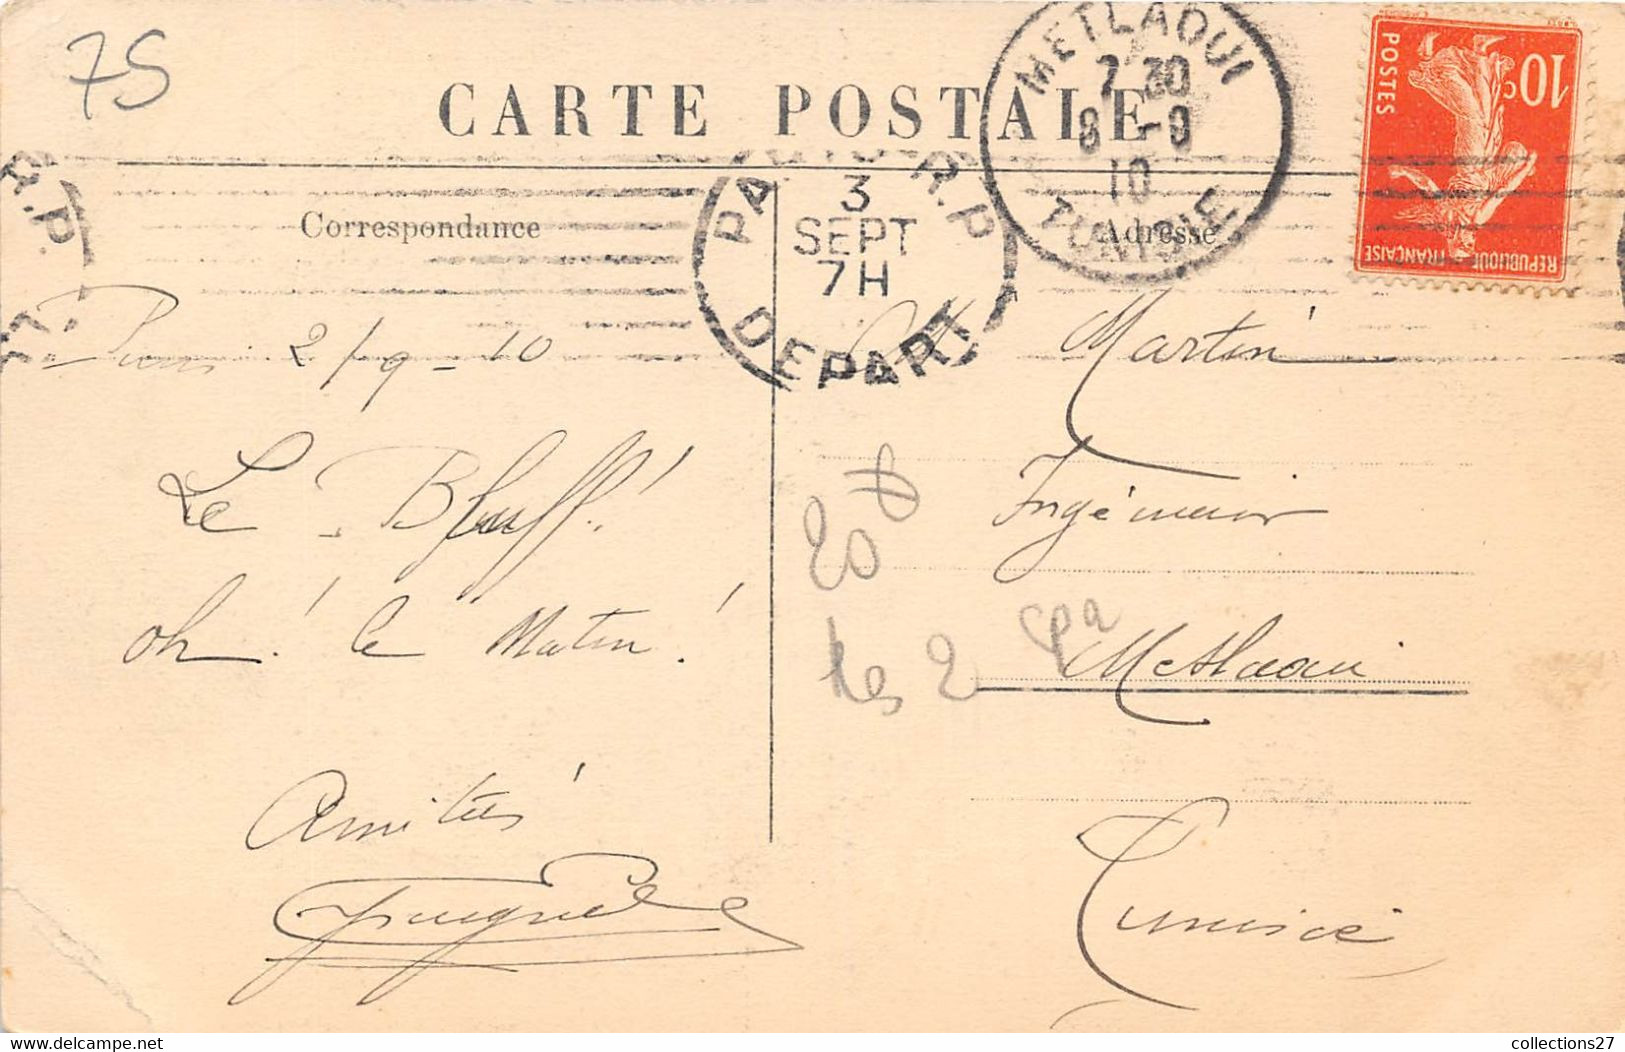 75
CARTE POSTALE
METLAOUI
7 30
8 -9
10
TUNISIE
10c
POSTES
REPUBLIQUE FRANÇAISE
R.P.
Correspondance
PARIS R.P.
3
SEPT
7H
DEPART
Adresse
Paris 2/9-10
Le Bluff!
oh! le Matin!
Amitiés
Martin
Ingénieur
Metlaoui
Tunisie
20 F
les 2 cpa
collections27